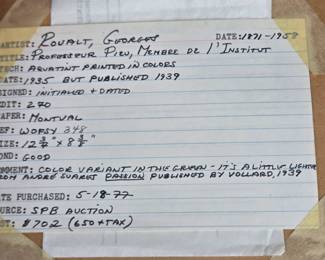 ARTIST: ROUALT, GEORGES DATE: 1871-1958
TITLE: PROFESSEUR PIEU, MEMBRE DE L'INSTITUT
TECH: AQUATINT PRINTED IN COLORS
DATE: 1935 BUT PUBLISHED 1939
SIGNED: INITIALED + DATED
EDIT: 270
PAPER: MONTVAL
REF: WOFSY 348
SIZE: 12 3/8" x 8 3/8"
COND: GOOD
COMMENT: COLOR VARIANT IN THE GREEN - IT'S A LITTLE LIGHTER
FROM ANDRÉ SUARES PASSION PUBLISHED BY VOLLARD, 1939
DATE PURCHASED: 5-18-77
SOURCE: SPB AUCTION
COST: $702 (650 + TAX)